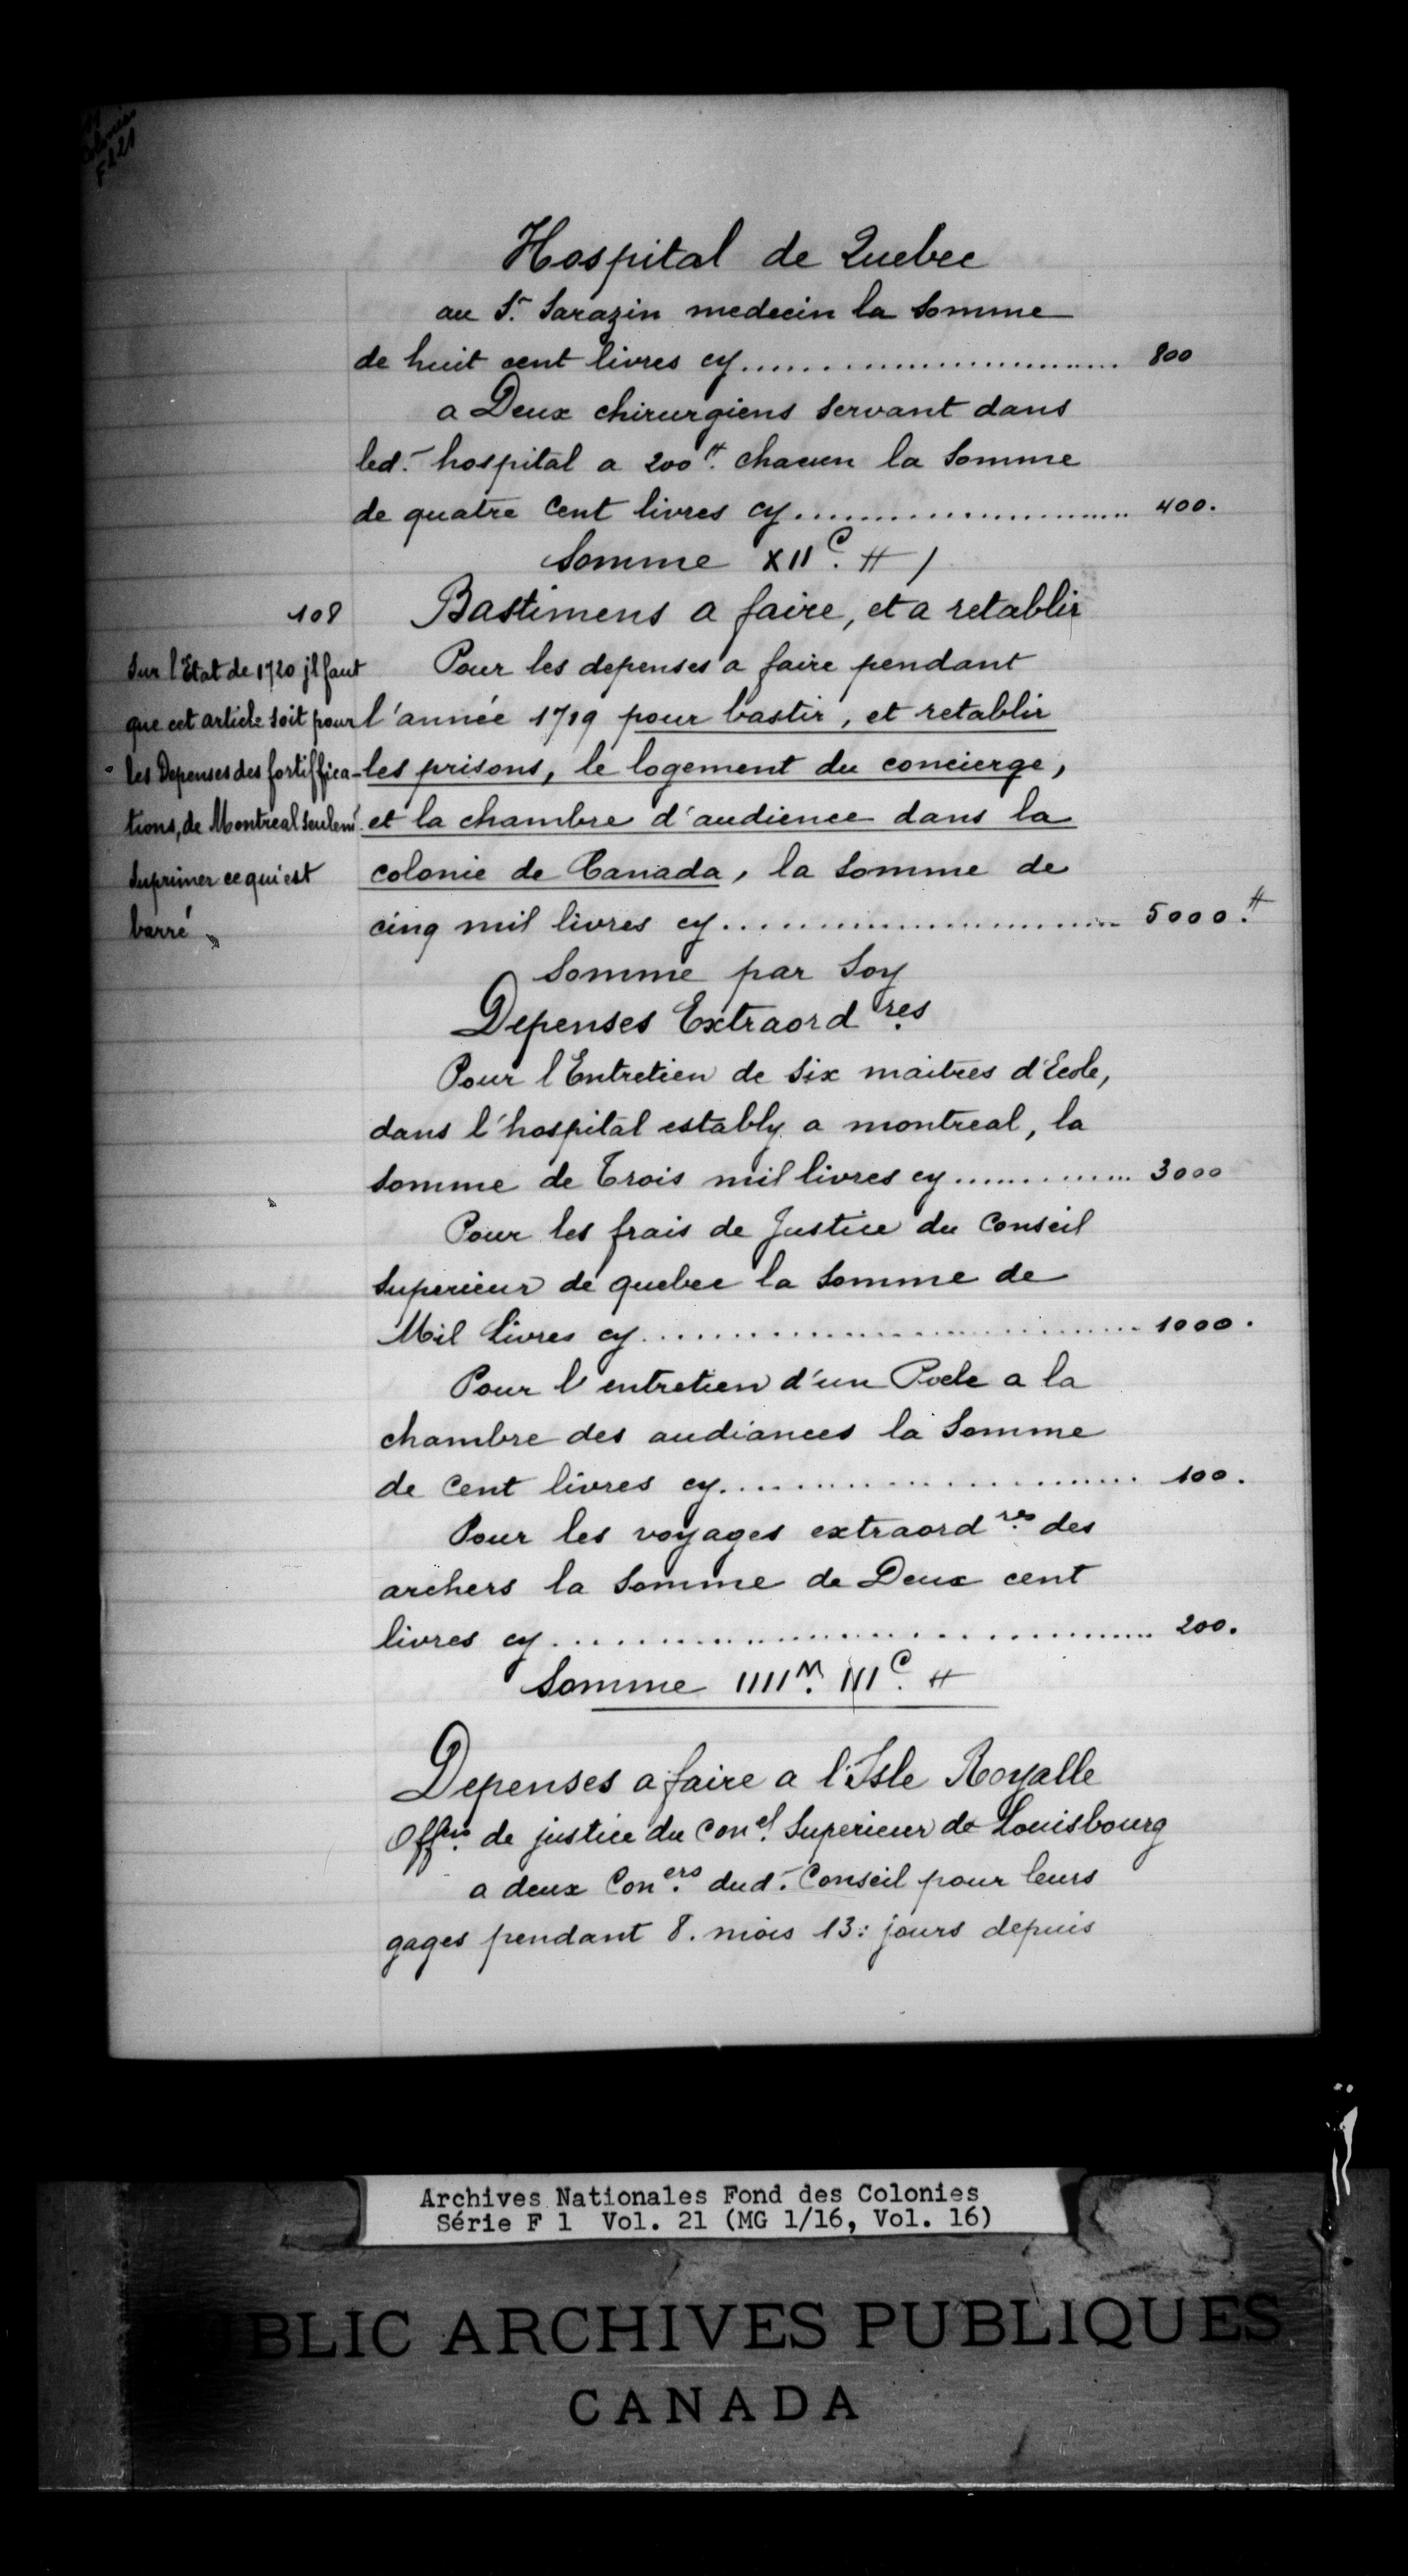 Colonies
F1 21
Hospital de Quebec
au Sr. Sarazin medecin la Somme
de huit cent livres cy........................... 800
a Deux chirurgiens Servant dans
led. hospital a 200tt. chacun la Somme
de quatre Cent livres cy........................ 400.
Somme XIIC. tt /
108
Bastimens a faire, et a retablir
Sur l'Etat de 1720 jl faut
que cet article soit pour
les Depenses des fortiffica-
tions, de Montreal seulemt.
Suprimer ce qui est
barré
Pour les depenses a faire pendant
l'année 1719 pour bastir, et retablir
les prisons, le logement du concierge,
et la chambre d'audience dans la
colonie de Canada, la Somme de
cinq mil livres cy............................ 5000.tt
Somme par Soy
Depenses Extraordres
Pour l'Entretien de Six maitres d'Ecole,
dans l'hospital estably a montreal, la
Somme de Trois mil livres cy.............. 3000
Pour les frais de Justice du Conseil
Superieur de quebec la Somme de
Mil Livres cy.................................... 1000.
Pour l'entretien d'un Poele a la
chambre des audiances la Somme
de Cent livres cy............................ 100.
Pour les voyages extraordres des
archers la Somme de Deux cent
livres cy........................................ 200.
Somme IIIIM. IIIC. tt
Depenses a faire a l'Isle Royalle
Offrs. de justice du Conel. Superieur de Louisbourg
a deux Coners. dud. Conseil pour leurs
gages pendant 8. mois 13: jours depuis
Archives Nationales Fond des Colonies
Série F 1 Vol. 21 (MG 1/16, Vol. 16)
BLIC ARCHIVES PUBLIQUES
CANADA